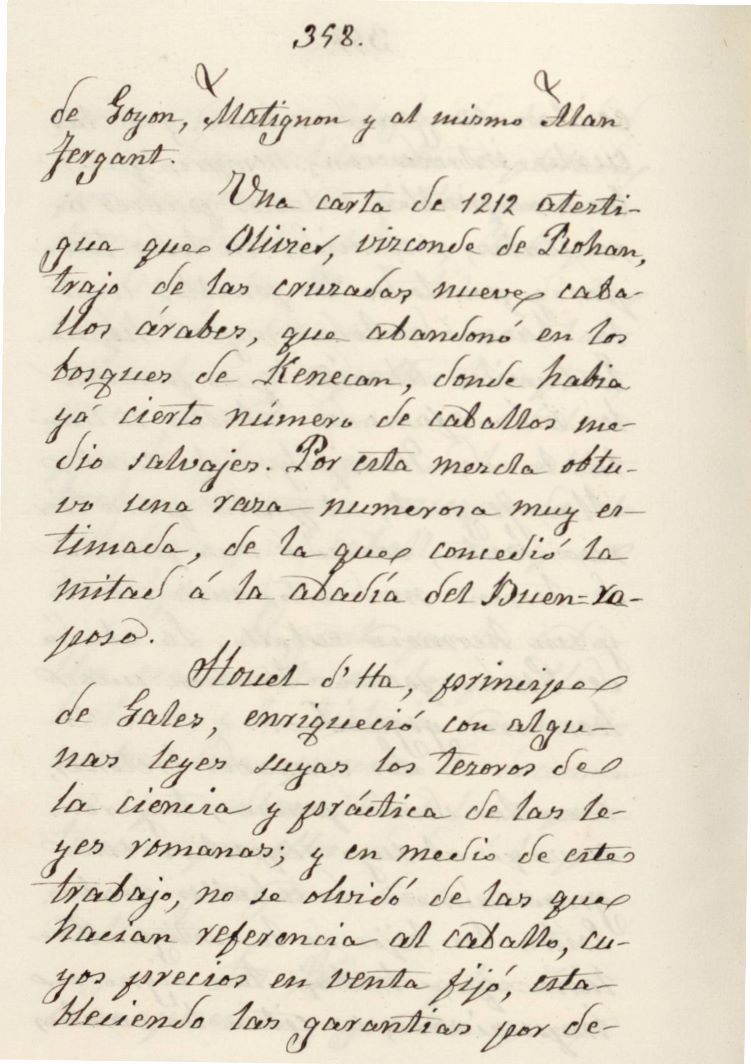 358.
de Goyon, Matignon y al mismo Alan
Fergant.
Una carta de 1212 atesti-
gua que Olivier, vizconde de Rohan,
trajo de las cruzadas nueve caba-
llos árabes, que abandonó en los
bosques de Kenecan, donde habia
yá cierto número de caballos me-
dio salvajes. Por esta mezcla obtu-
vo una raza numerosa muy es-
timada, de la que concedió la
mitad á la abadía del Buen=re-
poso.
Houel d'Ha, principe
de Gales, enriqueció con algu-
nas leyes suyas los tezoros de
la ciencia y práctica de las le-
yes romanas; y en medio de este
trabajo, no se olvidó de las que
hacian referencia al caballo, cu-
yos precios en venta fijó, esta-
bleciendo las garantias por de-